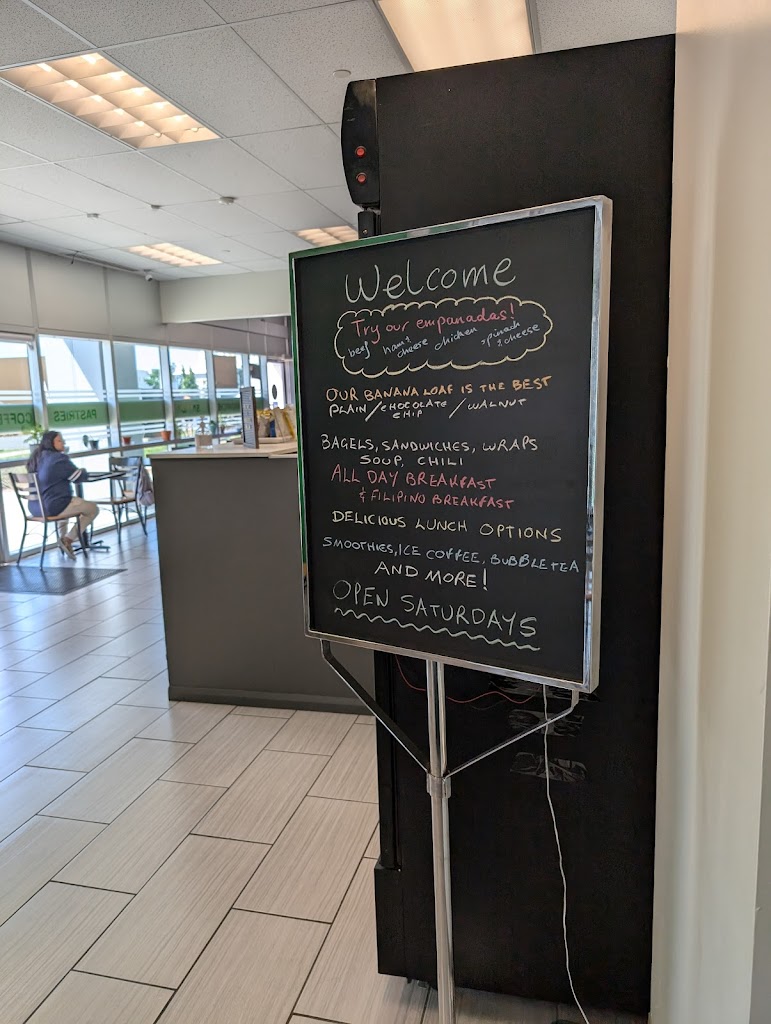 Welcome
Try our empanadas!
beef ham & cheese chicken spinach & cheese
OUR BANANA LOAF IS THE BEST
PLAIN / CHOCOLATE CHIP / WALNUT
BAGELS, SANDWICHES, WRAPS
SOUP, CHILI
ALL DAY BREAKFAST
& FILIPINO BREAKFAST
DELICIOUS LUNCH OPTIONS
SMOOTHIES, ICE COFFEE, BUBBLE TEA
AND MORE!
OPEN SATURDAYS
COFFE
PASTRIES